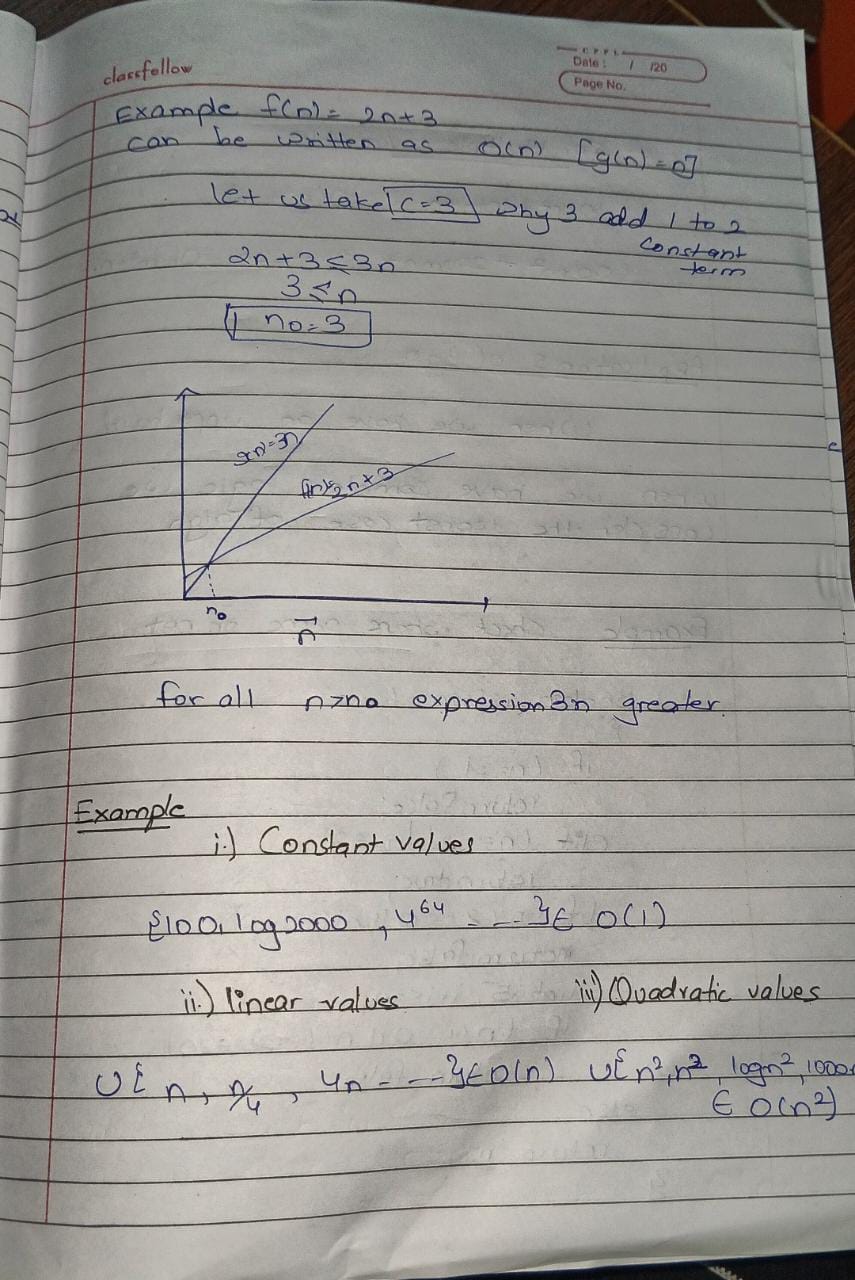 classfellow
Date: / /20
Page No.
Example f(n) = 2n+3
can be written as O(n) [g(n)=n]
let us take c=3 why 3 add 1 to 2
constant
term
2n+3≤3n
3≤n
n₀=3
g(n)=3n
f(n)=2n+3
n₀
n
for all n>n₀ expression 3n greater.
Example
i.) Constant values
{100, log2000, 4⁶⁴ - - - } ∈ O(1)
ii.) linear values iii) Quadratic values
U{n, n/4, 4n - - - -} ∈ O(n) U{n², n², logn², 1000
∈ O(n²)